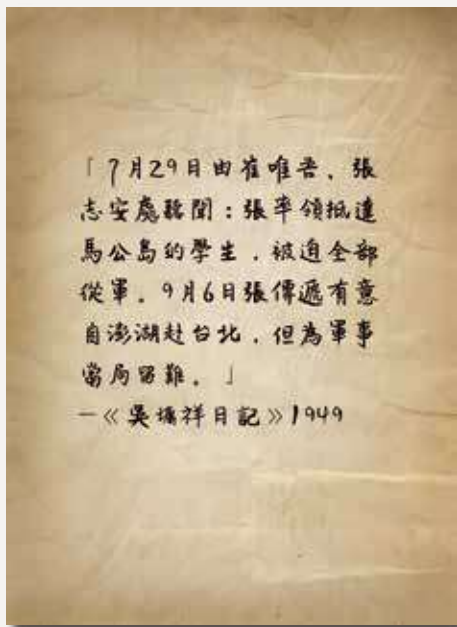 「7月29日由崔唯吾、張
志安處聽聞：張率領抵達
馬公島的學生，被迫全部
從軍。9月6日張傳遞有意
自澎湖赴台北，但為軍事
當局留難。」
—《吳墉祥日記》1949